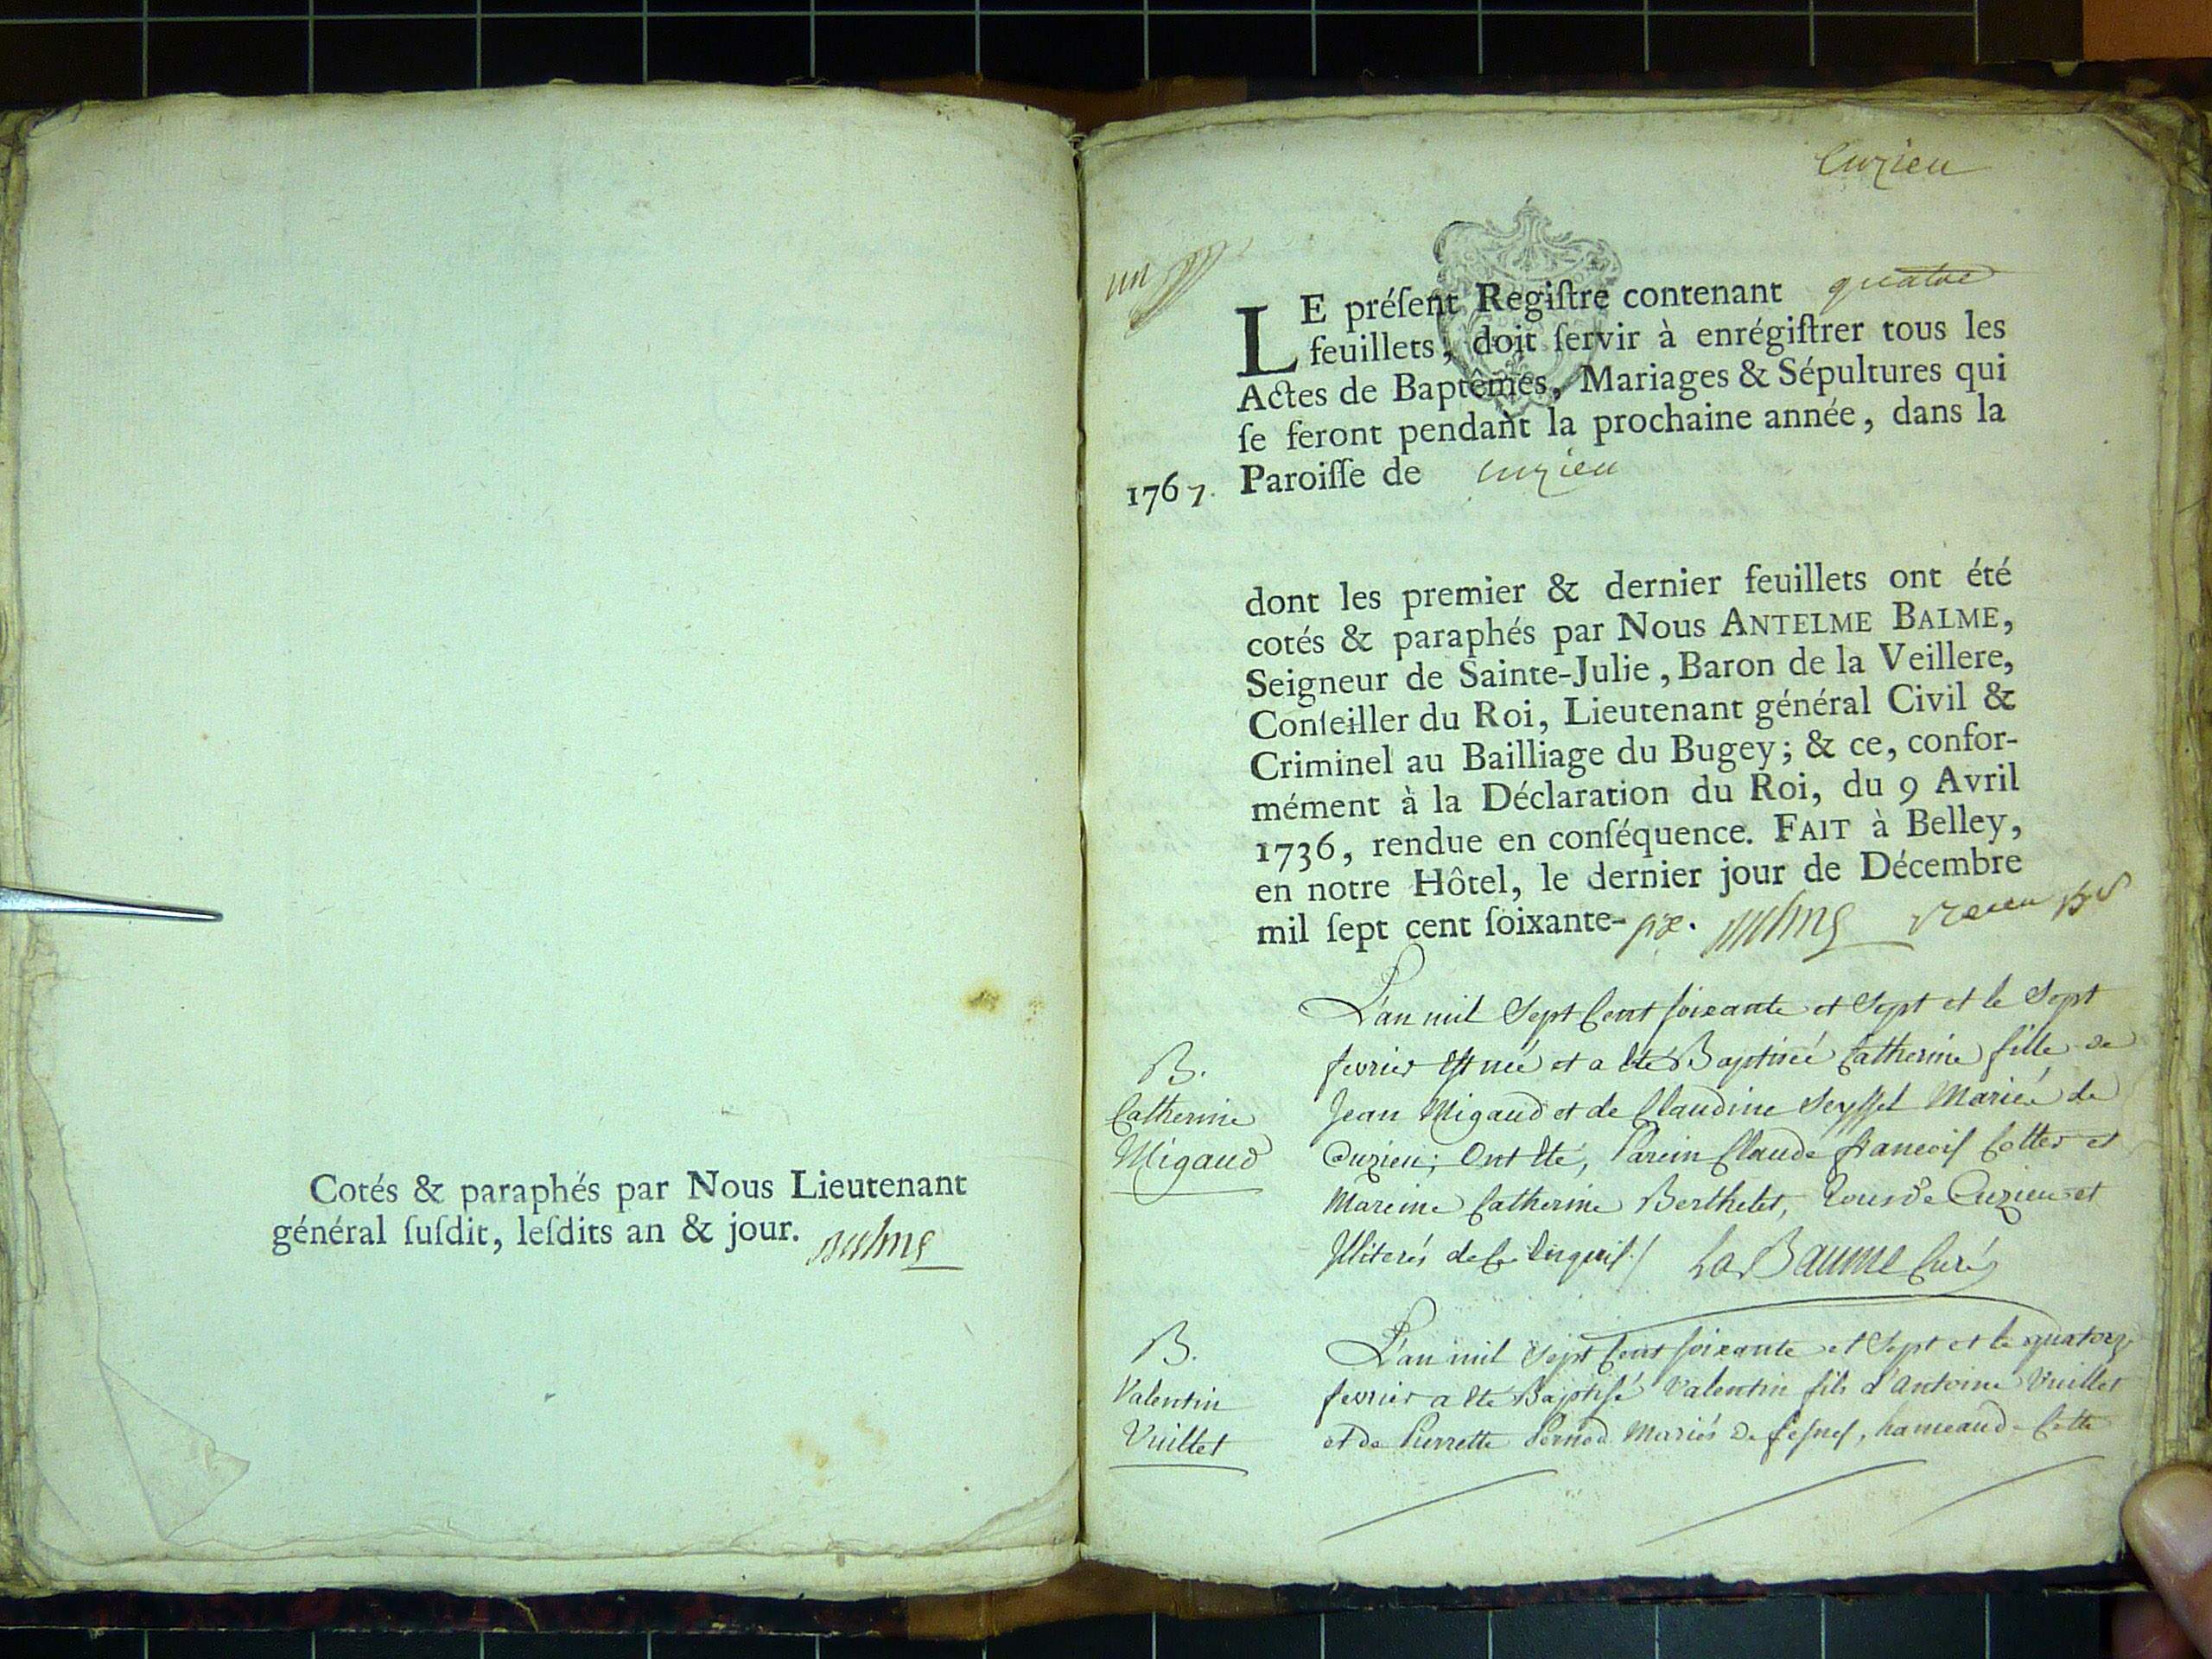 Cotés & paraphés par Nous Lieutenant
général ſuſdit, leſdits an & jour.
Cuzieu
un
LE préſent Regiſtre contenant quatre
feuillets, doit ſervir à enrégiſtrer tous les
Actes de Baptêmes, Mariages & Sépultures qui
ſe feront pendant la prochaine année, dans la
1767. Paroiſſe de Cuzieu
dont les premier & dernier feuillets ont été
cotés & paraphés par Nous ANTELME BALME,
Seigneur de Sainte-Julie, Baron de la Veillere,
Conſeiller du Roi, Lieutenant général Civil &
Criminel au Bailliage du Bugey; & ce, confor-
mément à la Déclaration du Roi, du 9 Avril
1736, rendue en conſéquence. FAIT à Belley,
en notre Hôtel, le dernier jour de Décembre
mil ſept cent ſoixante-six.
L'an mil Sept Cent soixante et Sept et le Sept
B.
Catherine
Migaud
fevrier Est née et a Eté Baptisée Catherine fille de
Jean Migaud et de Claudine Seyssel Mariés de
Cuzieu; Ont Eté, Parein Claude francois Cotter et
Mareine Catherine Berthelet, Tous de Cuzieu et
Illiterés de Ce Enquis./ La Baume Curé
B.
Valentin
Vuillet
L'an mil Sept Cent soixante et Sept et le quatorze
fevrier a Eté Baptisé Valentin fils d'Antoine Vuillet
et de Pierrette Pernod Mariés de hameau de Cette